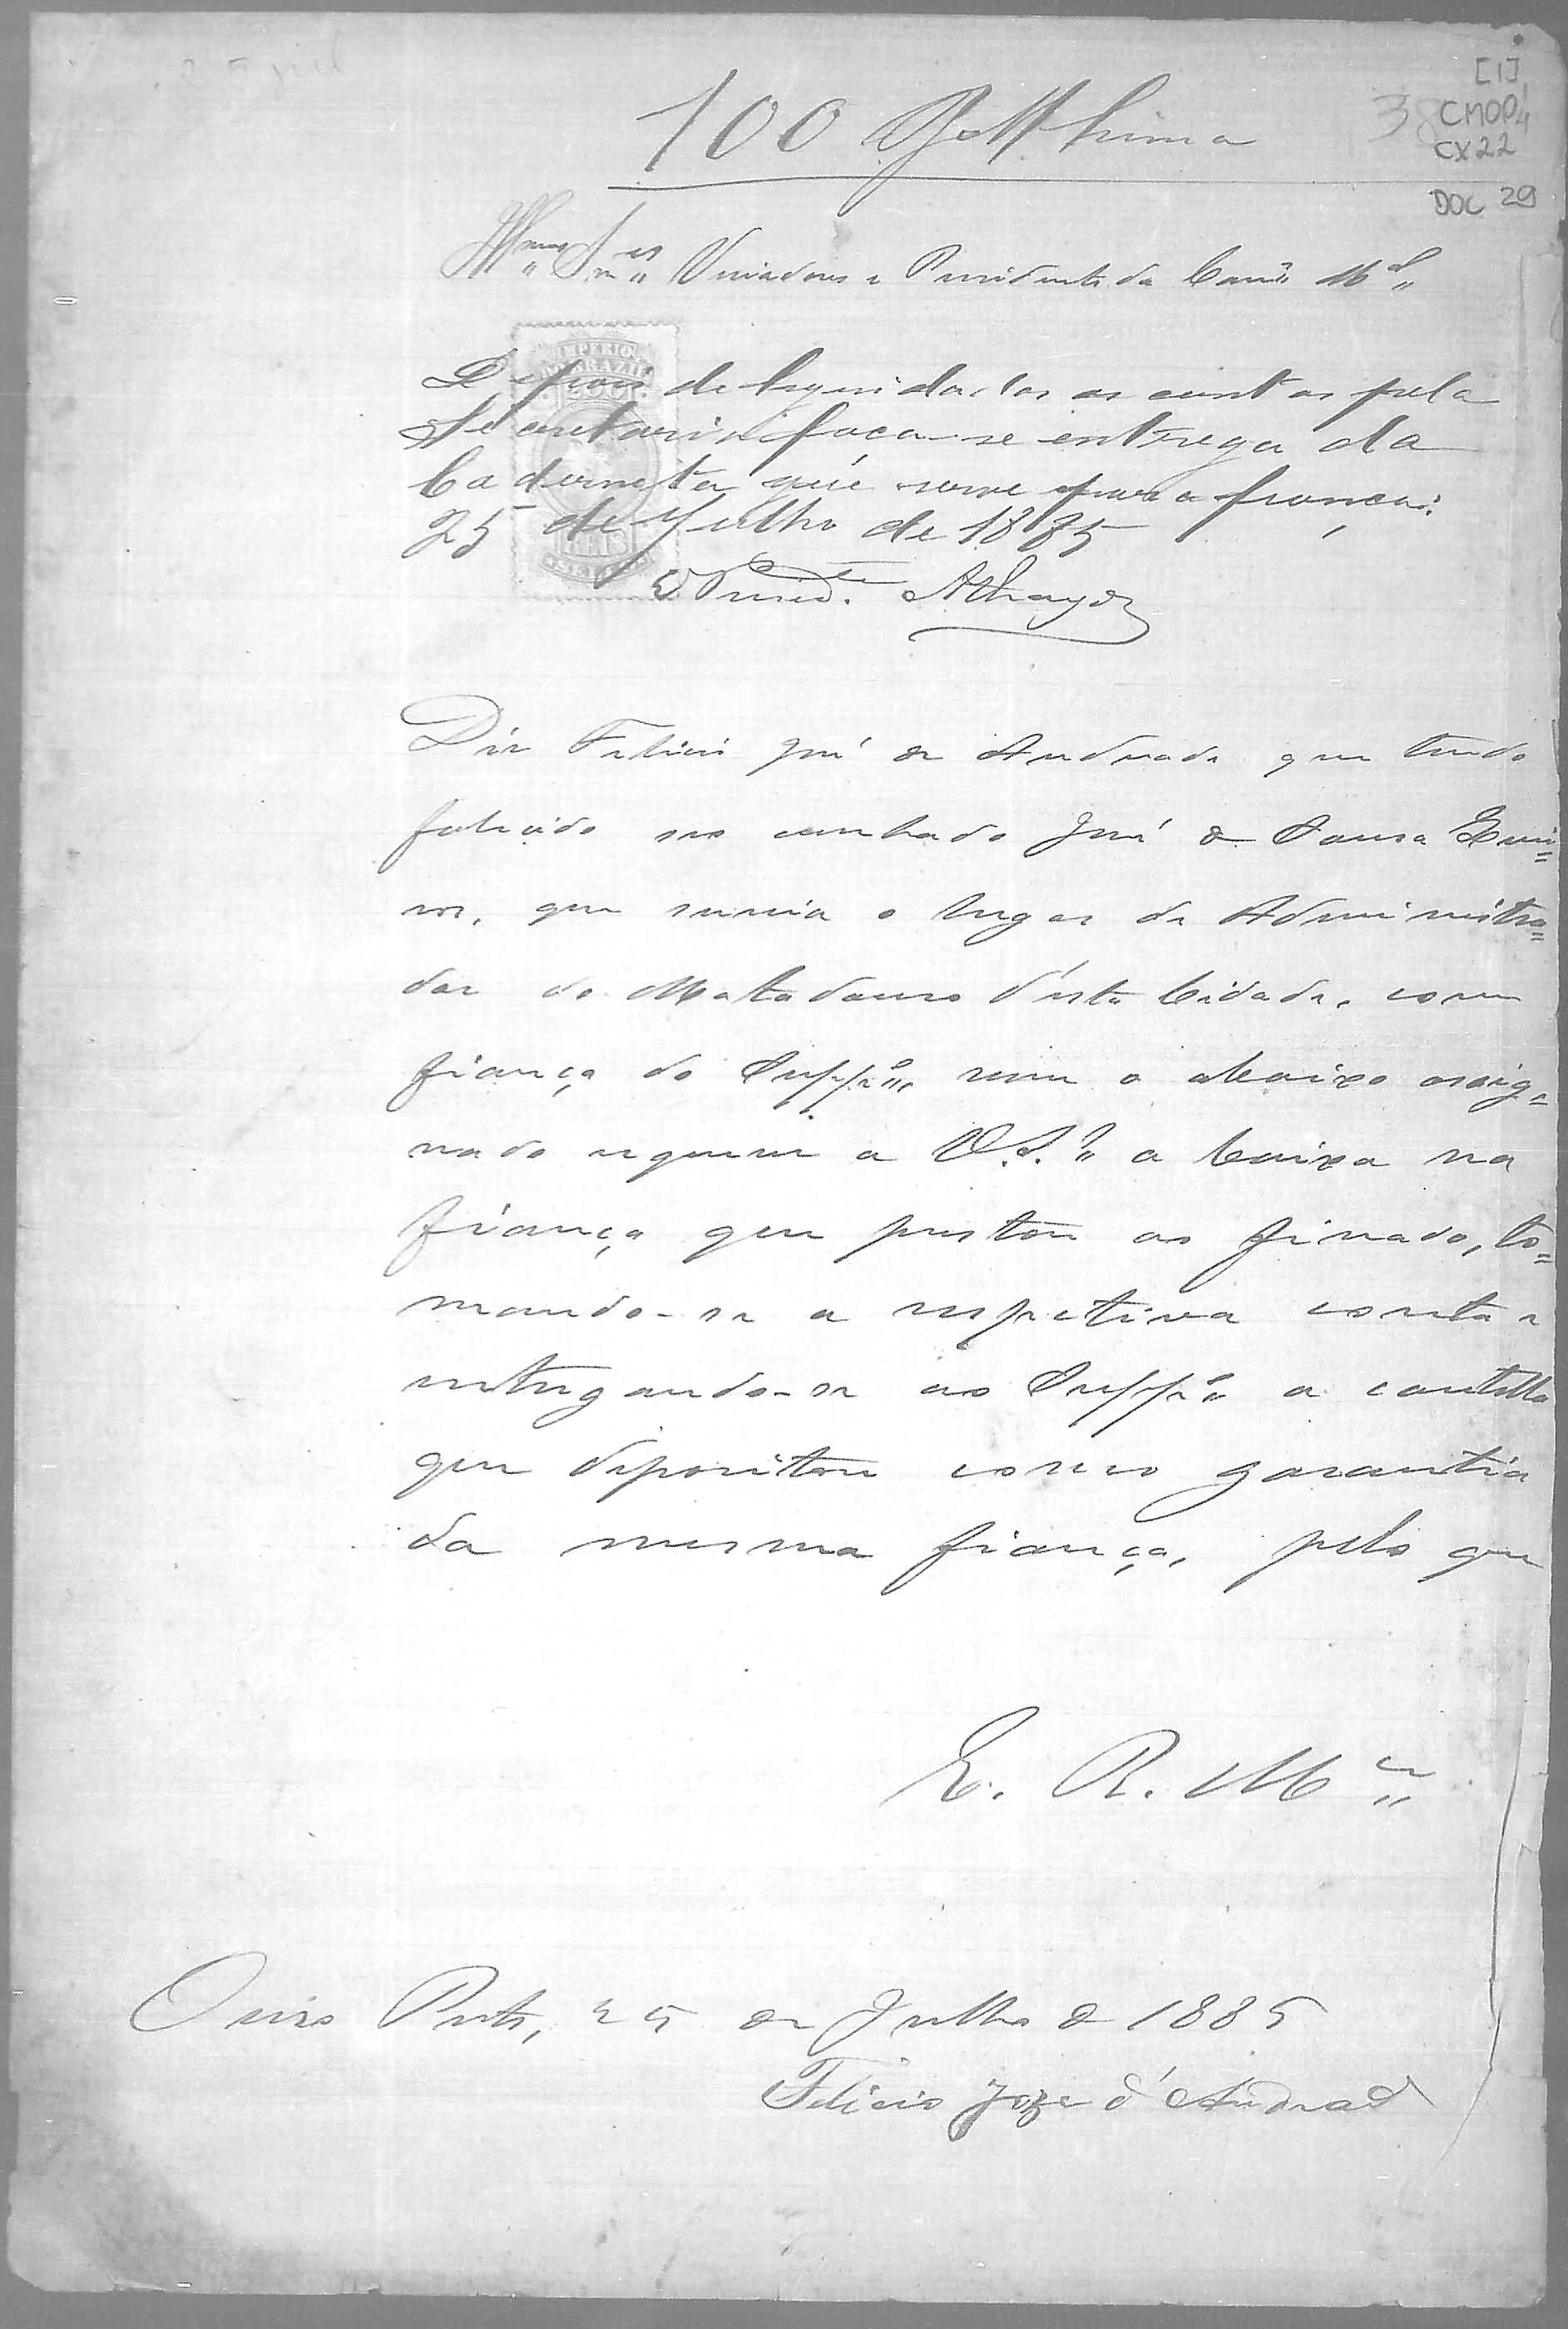 [1]
CMOP
CX22
DOC 29
100
Illmos Snres Vereadores e Presidente da Camª Mal
IMPERIO
DO BRAZIL
200
REIS
Depois de liquidadas as contas pela
Secretaria faça-se entrega da
Caderneta que serve para fiança.
25 de Julho de 1885
O Presid.te Athayde
Diz Felicio José de Andrade que tendo
fallecido seo cunhado José de Souza
que servia o lugar de Administra=
dor do Matadouro d'esta Cidade, com
fiança do Suppe, vem o abaixo assig=
nado requerer a V.S.as a baixa na
fiança que prestou ao finado, to=
mando-se a respectiva conta e
entregando-se ao Suppe a cautella
que depositou como garantia
da mesma fiança, pelo que
E. R. Mce
Ouro Preto, 25 de Julho de 1885
Felicio Joze d'Andrade